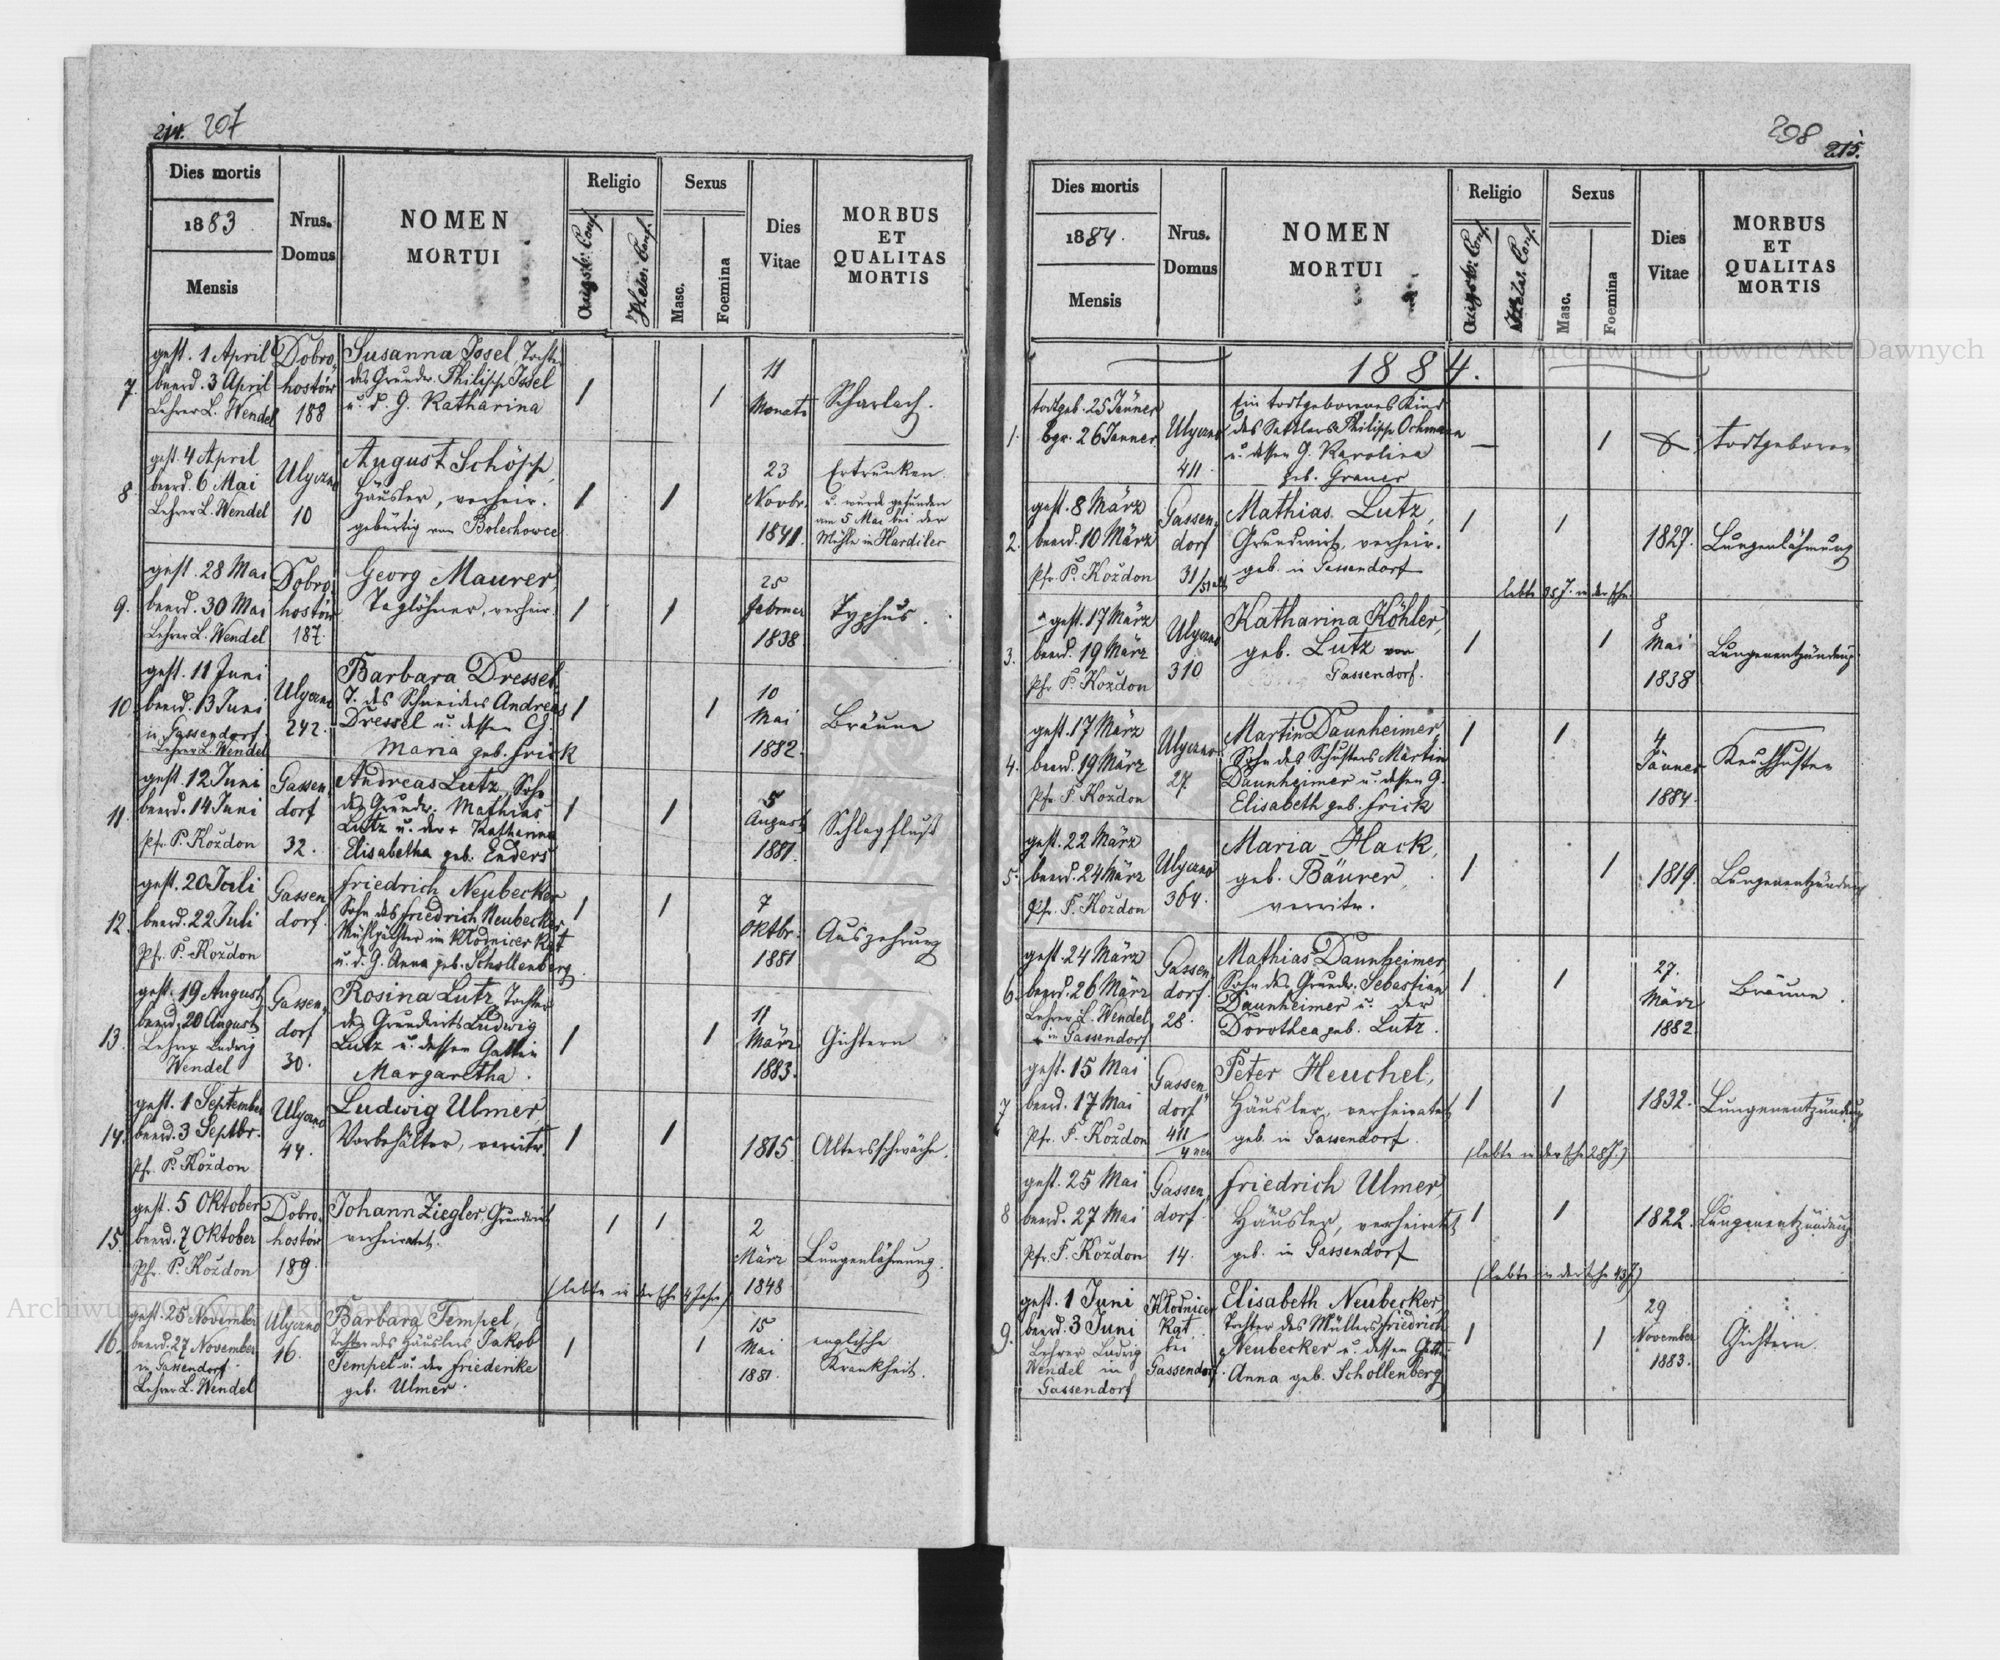 214. 207
Dies mortis
1883.
Mensis
Nrus.
Domus
NOMEN
MORTUI
Religio
Augsb. Conf.
Helv. Conf.
Sexus
Masc.
Foemina
Dies
Vitae
MORBUS
ET
QUALITAS
MORTIS
7.
gest. 1 April
beerd. 3 April
Lehrer L. Wendel
Dobro-
hostów
188
Susanna Issel, Tochter
des Grundw. Philipp Issel
u. d. G. Katharina
1
1
11
Monate
Scharlach.
8.
gest. 4 April
beerd. 6 Mai
Lehrer L. Wendel
Ulyczno
10
August Schöpp,
Häusler, verheir.
gebürtig von Bolechowce
1
1
23
Novbr.
1841.
Ertrunken
u. wurde gefunden
am 5 Mai bei der
Mühle in Hardiler
9.
gest. 28 Mai
beerd. 30 Mai
Lehrer L. Wendel
Dobro-
hostów
187.
Georg Maurer,
Taglöhner, verheir.
1
1
25
Februar
1838
Typhus.
10.
gest. 11 Juni
beerd. 13 Juni
in Gassendorf
Lehrer L. Wendel
Ulyczno
242.
Barbara Dressel,
T. des Schneiders Andreas
Dressel u. dessen G.
Maria geb. Frick
1
1
10
Mai
1882.
Bräune
11.
gest. 12 Juni
beerd. 14 Juni
Pfr. P. Koždon
Gassen-
dorf
32.
Andreas Lutz, Sohn
des Grundw. Mathias
Lutz u. der + Katharina
Elisabetha geb. Enders
1
1
5
August
1881.
Schlagfluß
12.
gest. 20 Juli
beerd. 22 Juli
Pfr. P. Koždon
Gassen-
dorf.
Friedrich Neubecker
Sohn des Friedrich Neubecker
Mühlpächter im Klodnicer Kąt
u. d. G. Anna geb. Schollenberg.
1
1
7
Oktbr.
1881
Auszehrung
13.
gest. 19 August
beerd. 20 August
Lehrer Ludwig
Wendel
Gassen-
dorf
30.
Rosina Lutz, Tochter
des Grundwirts Ludwig
Lutz u. dessen Gattin
Margaretha.
1
1
11
März
1883.
Gichtern
14.
gest. 1 September
beerd. 3 Septbr.
Pfr. P. Koždon
Ulyczno
44.
Ludwig Ulmer
Vorbehälter, verwitw.
1
1
1815
Altersschwäche.
15.
gest. 5 Oktober
beerd. 7 Oktober
Pfr. P. Koždon
Dobro-
hostow
189
Johann Ziegler, Grundwirt
verheiratet.
1
1
(lebte in der Ehe 4 Jahre)
2
März
1848
Lungenlähmung.
16.
gest. 25 November
beerd. 27 November
in Gassendorf
Lehrer L. Wendel
Ulyczno
16.
Barbara Tempel,
Tochter des Häuslers Jakob
Tempel u. der Friederike
geb. Ulmer.
1
1
15
Mai
1881.
englische
Krankheit.
208 215.
Dies mortis
1884.
Mensis
Nrus.
Domus
NOMEN
MORTUI
Religio
Augsb. Conf.
Helv. Conf.
Sexus
Masc.
Foemina
Dies
Vitae
MORBUS
ET
QUALITAS
MORTIS
1884.
1.
todtgeb. 25 Jänner
bgr. 26 Janner
Ulyczno
411.
Ein todtgeborenes Kind
des Sattlers Philipp Ochmann
u. dessen G. Karolina
geb. Graner
1
todtgeboren
2.
gest. 8 März
beerd. 10 März
Pfr. P. Koždon
Gassen-
dorf
31/51 alt
Mathias Lutz,
Grundwirt, verheir.
geb. in Gassendorf
1
1
1827.
Lungenlähmung
3.
gest. 17 März
beerd. 19 März
Pfr. P. Koždon
Ulyczno
310
Katharina Köhler,
geb. Lutz von
Gassendorf.
1
1
8
Mai
1838
Lungenentzündung.
4.
gest. 17 März
beerd. 19 März
Pfr. P. Koždon
Ulyczno
27.
Martin Daunheimer,
Sohn des Schusters Martin
Daunheimer u. dessen G.
Elisabeth geb. Frick
1
1
4
Jänner
1884.
Keuchhusten
5.
gest. 22 März
beerd. 24 März
Pfr. P. Koždon
Ulyczno
364.
Maria Hack,
geb. Bäurer,
verwitw.
1
1
1819.
Lungenentzündung
6.
gest. 24 März
beerd. 26 März
Lehrer L. Wendel
in Gassendorf
Gassen-
dorf.
28.
Mathias Daunheimer,
Sohn des Grundw. Sebastian
Daunheimer u. der
Dorothea geb. Lutz.
1
1
27.
März
1882
Bräune.
7
gest. 15 Mai
beerd. 17 Mai
Pfr. P. Koždon
Gassen-
dorf
411/4 neu
Peter Heuchel,
Häusler, verheiratet
geb. in Gassendorf.
1
1
(lebte in der Ehe 28 J.)
1832.
Lungenentzündung
8
gest. 25 Mai
beerd. 27 Mai
Pfr. P. Koždon
Gassen-
dorf.
14.
Friedrich Ulmer,
Häusler, verheiratet
geb. in Gassendorf
1
1
(lebte in der Ehe 43 J.)
1822.
Lungenentzündung
9.
gest. 1 Juni
beerd. 3 Juni
Lehrer Ludwig
Wendel in
Gassendorf
Klodnicer
Kąt
bei
Gassendorf.
Elisabeth Neubecker,
Tochter des Müllers Friedrich
Neubecker u. dessen Gattin
Anna geb. Schollenberg
1
1
29
November
1883.
Gichtern.
Archiwum Główne Akt Dawnych
Archiwum Główne Akt Dawnych